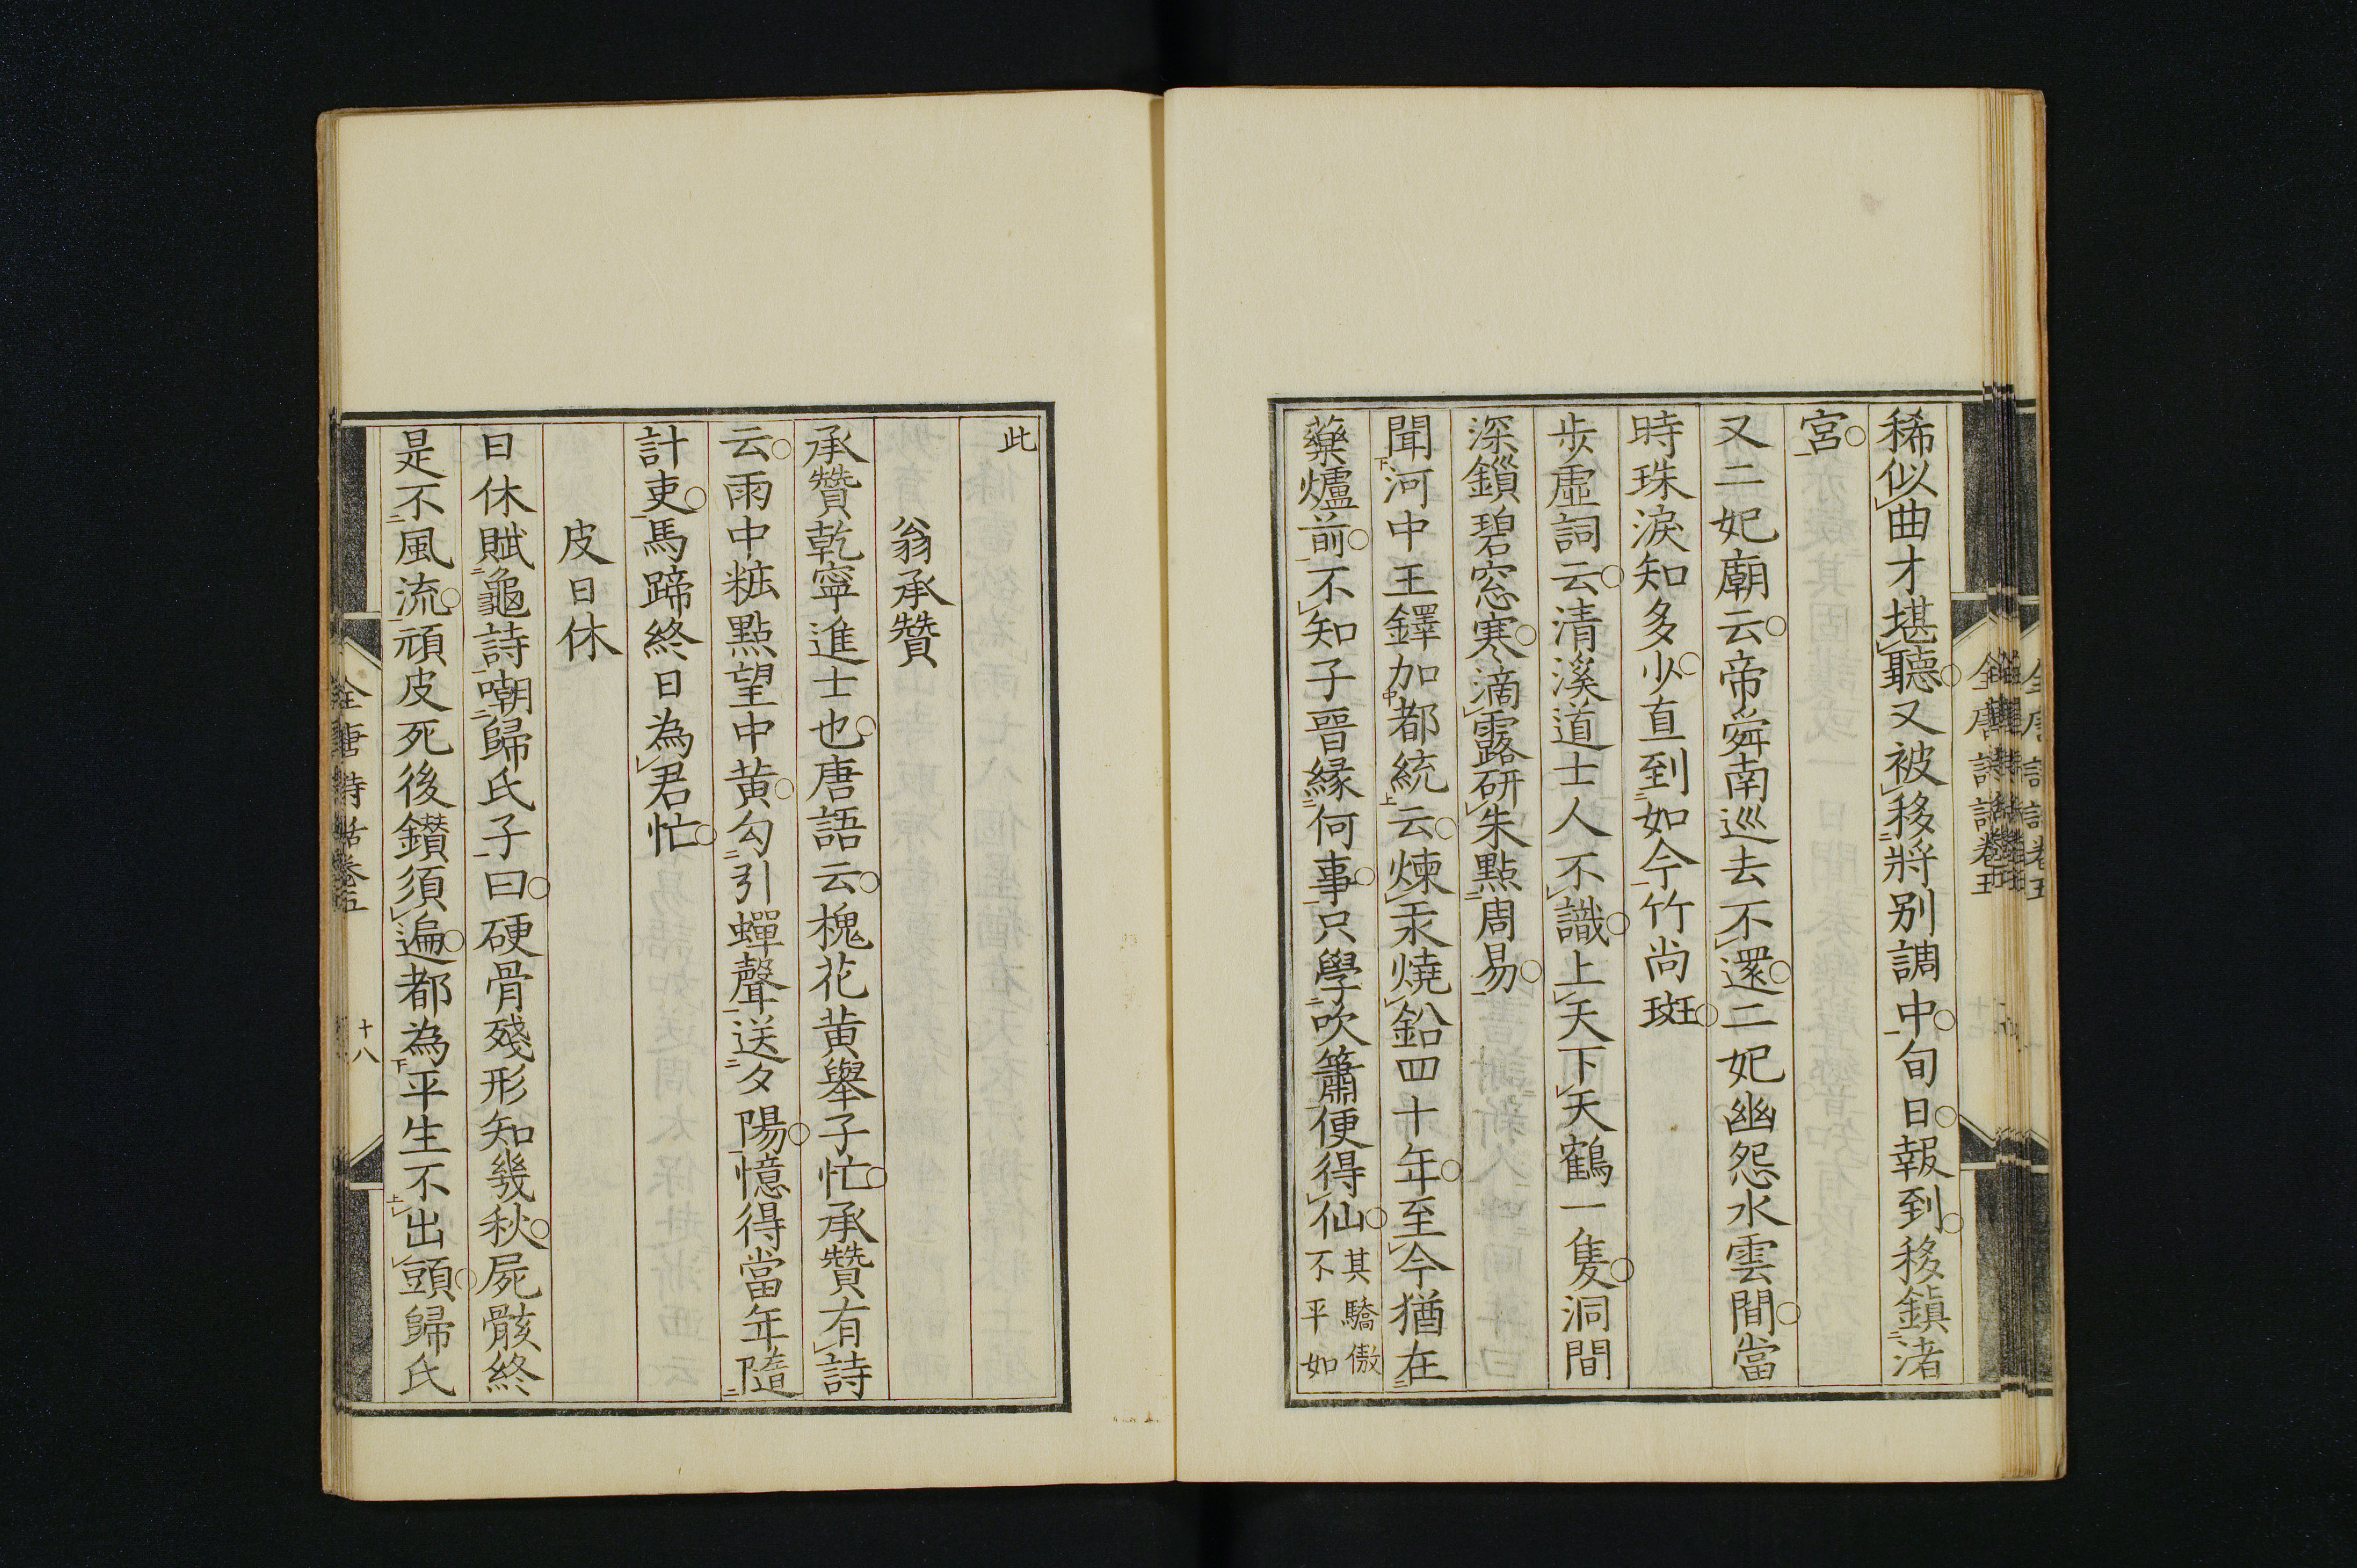 稀似曲才堪聽又被移將别調中旬日報到移鎮渚
宮
又二妃廟云帝舜南巡去不還二妃幽怨水雲間當
時珠淚知多少直到如今竹尚斑
步虛詞云清溪道士人不識上天下天鶴一隻洞間
深鎻碧窓寒滴露研朱點周易
聞河中王鐸加都統云煉汞燒鉛四十年至今猶在
藥爐前不知子晋緣何事只學吹簫便得仙其驕傲
不平如
此
翁承贊
承贊乾寧進士也唐語云槐花黃舉子忙承贊有詩
云雨中粧點望中黃勾引蟬聲送夕陽憶得當年隨
計吏馬蹄終日為君忙
皮日休
日休賦龜詩嘲歸氏子曰硬骨殘形知幾秋屍骸終
是不風流頑皮死後鑽須遍都為平生不出頭歸氏
全唐詩話卷五
十八